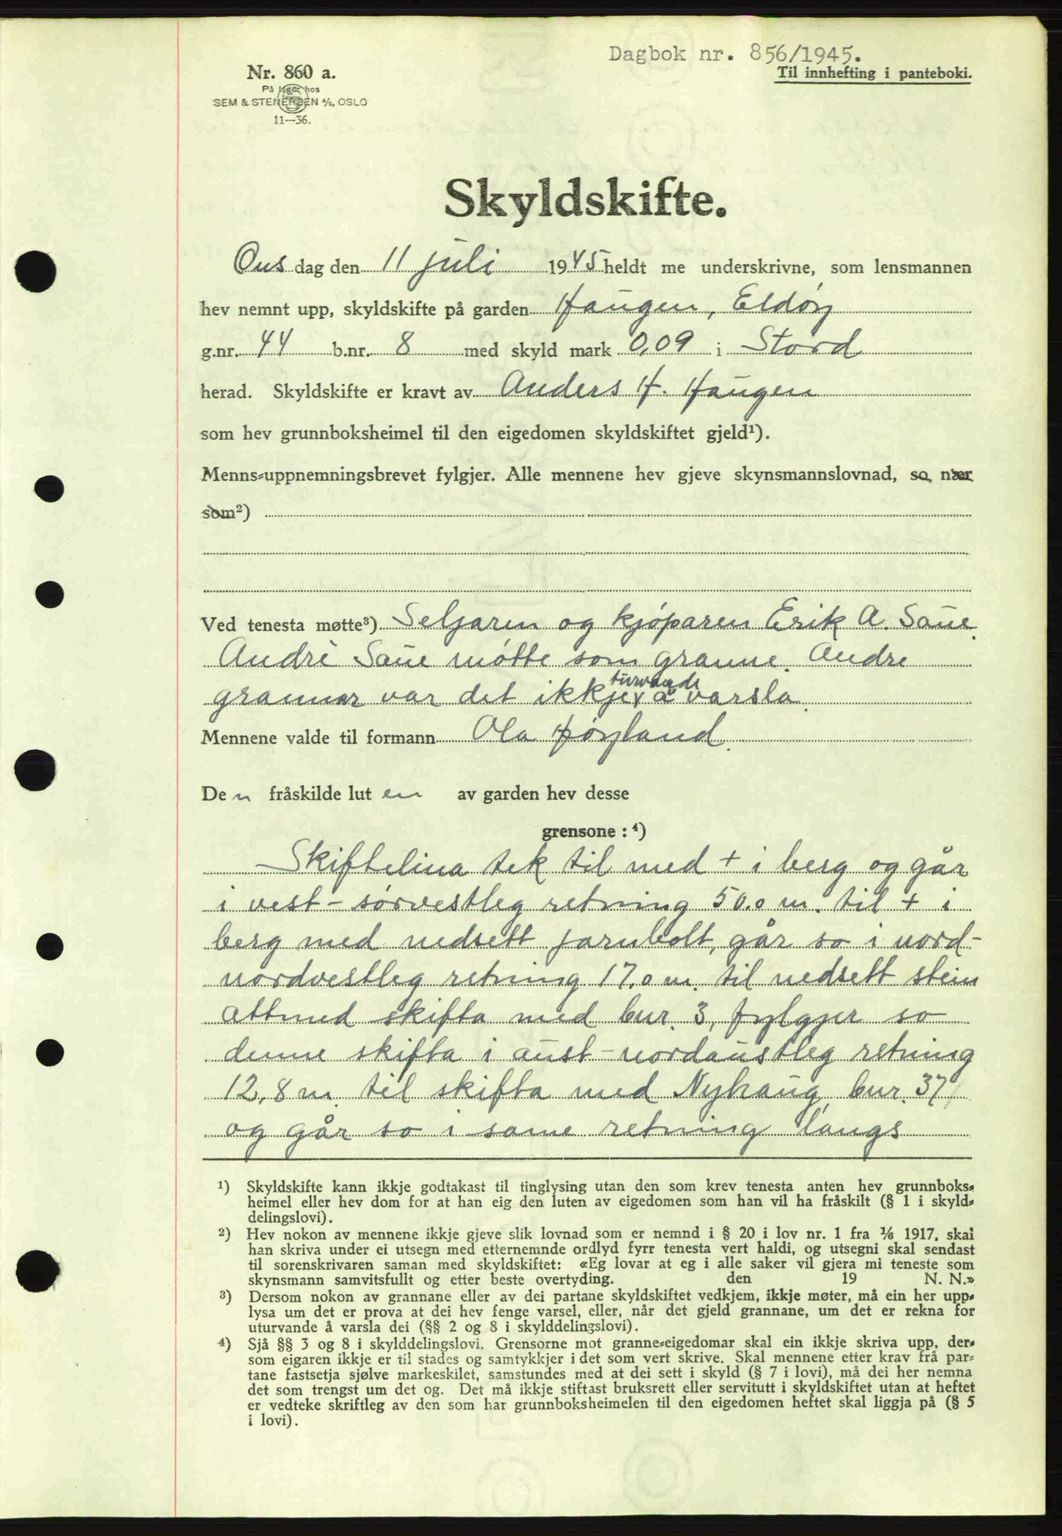 Dagbok nr. 856/1945.
Nr. 860 a.
Til innhefting i panteboki.
På lager hos
SEM & STENERSEN A/S, OSLO
11—36.
Skyldskifte.
Ons dag den 11 juli 1945 heldt me underskrivne, som lensmannen
hev nemnt upp, skyldskifte på garden Haugen, Eldøy
g.nr. 44 b.nr. 8 med skyld mark 0,09 i Stord
herad. Skyldskifte er kravt av Anders H. Haugen
som hev grunnboksheimel til den eigedomen skyldskiftet gjeld¹).
Menns-uppnemningsbrevet fylgjer. Alle mennene hev gjeve skynsmannslovnad, so nær
som²)
Ved tenesta møtte³) Seljaren og kjøparen Erik A. Saue.
Andrè Saue møtte som granne. Andre
turvande
grannar var det ikkje å varsla.
Mennene valde til formann Ola Høyland.
De n fråskilde lut en av garden hev desse
grensone : ⁴)
Skiftelina tek til med + i berg og går
i vest-sørvestleg retning 50.0 m. til + i
berg med nedsett jarnbolt, går so i nord-
nordvestleg retning 17.0 m. til nedsett stein
attmed skifta med bnr. 3, fylgjer so
denne skifta i aust-nordaustleg retning
12,8 m. til skifta med Nyhaug, bnr. 37,
og går so i same retning langs
¹) Skyldskifte kann ikkje godtakast til tinglysing utan den som krev tenesta anten hev grunnboks-
heimel eller hev dom for at han eig den luten av eigedomen som han vil ha fråskilt (§ 1 i skyld-
delingslovi).
²) Hev nokon av mennene ikkje gjeve slik lovnad som er nemnd i § 20 i lov nr. 1 fra 1/6 1917, skal
han skriva under ei utsegn med etternemnde ordlyd fyrr tenesta vert haldi, og utsegni skal sendast
til sorenskrivaren saman med skyldskiftet: «Eg lovar at eg i alle saker vil gjera mi teneste som
skynsmann samvitsfullt og etter beste overtyding. den 19 N. N.»
³) Dersom nokon av grannane eller av dei partane skyldskiftet vedkjem, ikkje møter, må ein her upp-
lysa um det er prova at dei hev fenge varsel, eller, når det gjeld grannane, um det er rekna for
uturvande å varsla dei (§§ 2 og 8 i skylddelingslovi).
⁴) Sjå §§ 3 og 8 i skylddelingslovi. Grensorne mot granne-eigedomar skal ein ikkje skriva upp, der-
som eigaren ikkje er til stades og samtykkjer i det som vert skrive. Skal mennene etter krav frå par-
tane fastsetja sjølve markeskilet, samstundes med at dei sett i skyld (§ 7 i lovi), må dei her nemna
det som trengst um det og. Det må ikkje stiftast bruksrett eller servitutt i skyldskiftet utan at heftet
er vedteke skriftleg av den som har grunnboksheimelen til den eigedomen heftet skal liggja på (§ 5
i lovi).